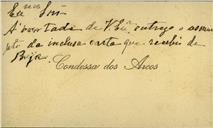 Exmo Snr
A' vontade de V. Exa entrego o assum
pto da inclusa carta que recebi de
Beja.
Condessa dos Arcos